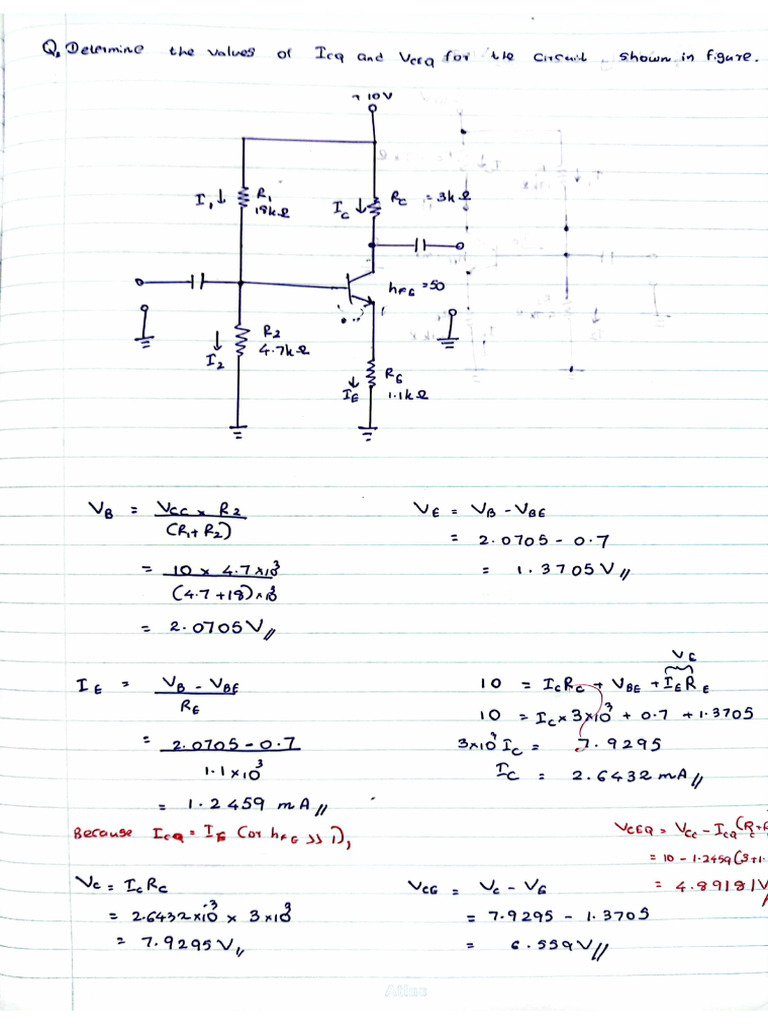 Q. Determine the values of ICQ and VCEQ for the circuit shown in figure.
+10V
I1↓ R1
18kΩ
IC↓ RC = 3kΩ
hFE = 50
↓ R2
I2 4.7kΩ
↓ RE
IE 1.1kΩ
VB = VCC × R2 / (R1+R2)
= 10 × 4.7×10³ / (4.7+18)×10³
= 2.0705V //
VE = VB - VBE
= 2.0705 - 0.7
= 1.3705V //
IE = VB - VBE / RE
= 2.0705 - 0.7 / 1.1×10³
= 1.2459 mA //
Because ICQ = IE (or hFE >> 1),
VE
10 = ICRC + VBE + IERE
10 = IC×3×10³ + 0.7 + 1.3705
3×10³ IC = 7.9295
IC = 2.6432 mA //
VCEQ = VCC - ICQ(RC+R
= 10 - 1.2459(3+1.
= 4.89181V
VC = ICRC
= 2.6432×10⁻³ × 3×10³
= 7.9295V //
VCE = VC - VE
= 7.9295 - 1.3705
= 6.559V //
Atlas